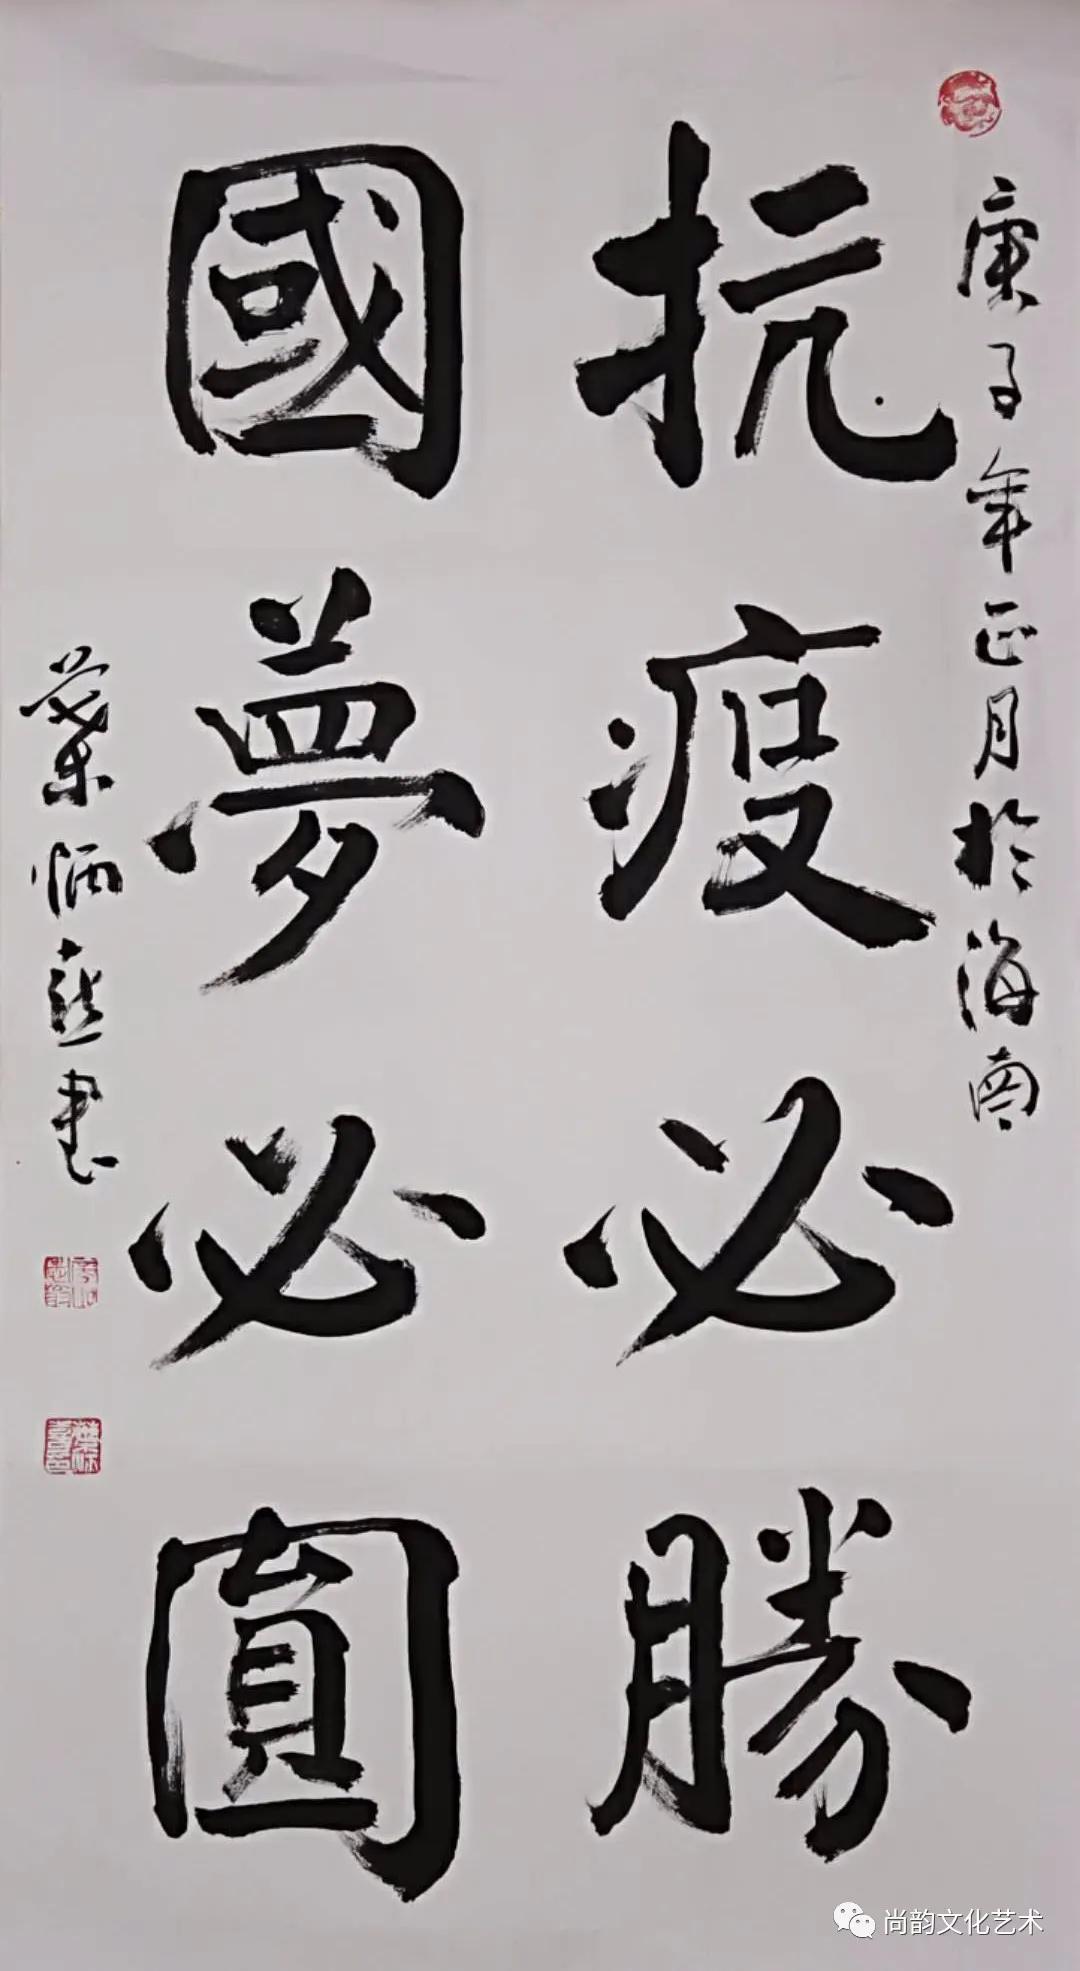 庚子年正月於海南
抗疫必勝
國夢必圓
葉炳燕書
尚韵文化艺术